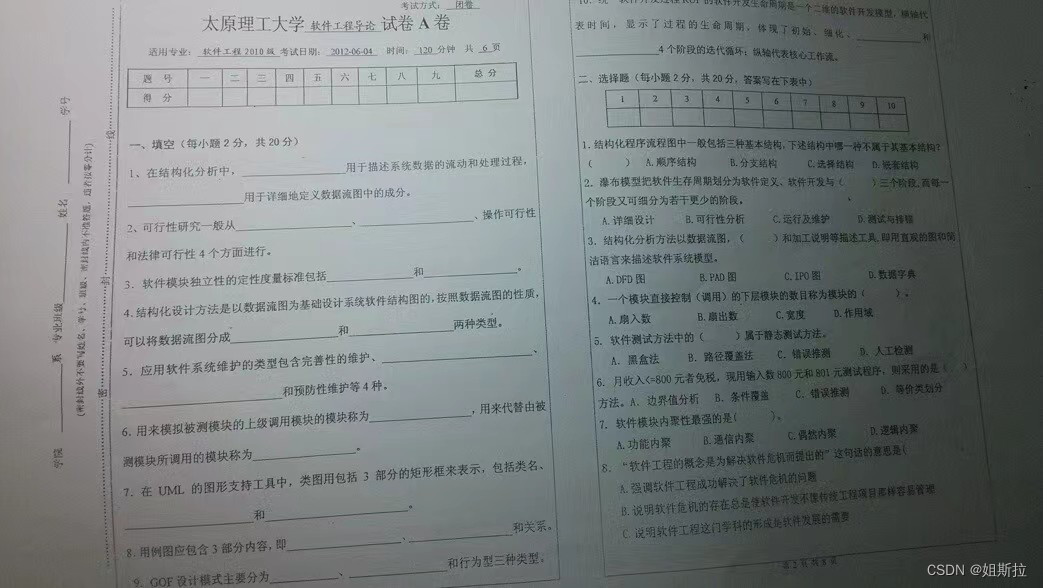 考试方式： 闭卷
太原理工大学 软件工程导论 试卷 A 卷
适用专业： 软件工程 2010 级 考试日期： 2012-06-04 时间： 120 分钟 共 6 页
题 号 一 二 三 四 五 六 七 八 九 总 分
得 分
一、填空（每小题 2 分，共 20 分）
1、在结构化分析中，____________用于描述系统数据的流动和处理过程，
____________用于详细地定义数据流图中的成分。
2、可行性研究一般从____________、____________、操作可行性
和法律可行性 4 个方面进行。
3．软件模块独立性的定性度量标准包括____________和____________。
4.结构化设计方法是以数据流图为基础设计系统软件结构图的,按照数据流图的性质，
可以将数据流图分成____________和____________两种类型。
5．应用软件系统维护的类型包含完善性的维护、____________、
____________和预防性维护等 4 种。
6．用来模拟被测模块的上级调用模块的模块称为____________，用来代替由被
测模块所调用的模块称为____________。
7．在 UML 的图形支持工具中，类图用包括 3 部分的矩形框来表示，包括类名、
____________和____________。
8．用例图应包含 3 部分内容，即____________、____________和关系。
9．GOF 设计模式主要分为____________、____________和行为型三种类型。
学院 ____________系 专业班级 ____________ 姓名 ____________ 学号
(密封线外不要写姓名、学号、班级、密封线内不准答题，违者按零分计)
密 封 线
RUP 的软件开发生命周期是一个二维的软件开发模型。横轴代
表时间，显示了过程的生命周期，体现了初始、细化、____________和
____________4 个阶段的迭代循环；纵轴代表核心工作流。
二、选择题（每小题 2 分，共 20 分，答案写在下表中）
1 2 3 4 5 6 7 8 9 10
1.结构化程序流程图中一般包括三种基本结构,下述结构中哪一种不属于其基本结构?
（ ） A.顺序结构 B.分支结构 C.选择结构 D.嵌套结构
2．瀑布模型把软件生存周期划分为软件定义、软件开发与（ ）三个阶段,而每一
个阶段又可细分为若干更少的阶段。
A.详细设计 B.可行性分析 C.运行及维护 D.测试与排错
3．结构化分析方法以数据流图,（ ）和加工说明等描述工具,即用直观的图和简
洁语言来描述软件系统模型。
A.DFD 图 B.PAD 图 C.IPO 图 D.数据字典
4．一个模块直接控制（调用）的下层模块的数目称为模块的（ ）。
A.扇入数 B.扇出数 C.宽度 D.作用域
5．软件测试方法中的（ ）属于静态测试方法。
A．黑盒法 B．路径覆盖法 C．错误推测 D．人工检测
6．月收入<=800 元者免税，现用输入数 800 元和 801 元测试程序，则采用的是（ ）
方法。A．边界值分析 B．条件覆盖 C．错误推测 D．等价类划分
7．软件模块内聚性最强的是( )。
A.功能内聚 B.通信内聚 C.偶然内聚 D.逻辑内聚
8．“软件工程的概念是为解决软件危机而提出的”这句话的意思是(
A.强调软件工程成功解决了软件危机的问题
B.说明软件危机的存在总是使软件开发不像传统工程项目那样容易管理
C 说明软件工程这门学科的形成是软件发展的需要
CSDN @姐斯拉